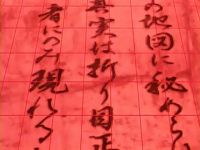 の地図に秘めら
真実は折り目正
者にのみ現れる